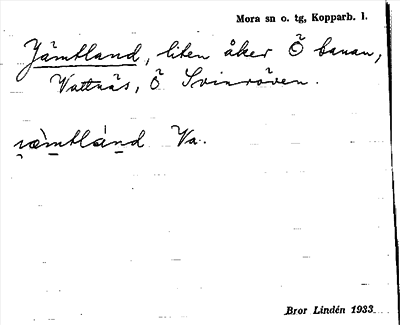 Mora sn o. tg, Kopparb. l.
Jämtland, liten åker Ö banan,
Vattnäs, Ö Svinröven.
Va.
Bror Lindén 1933